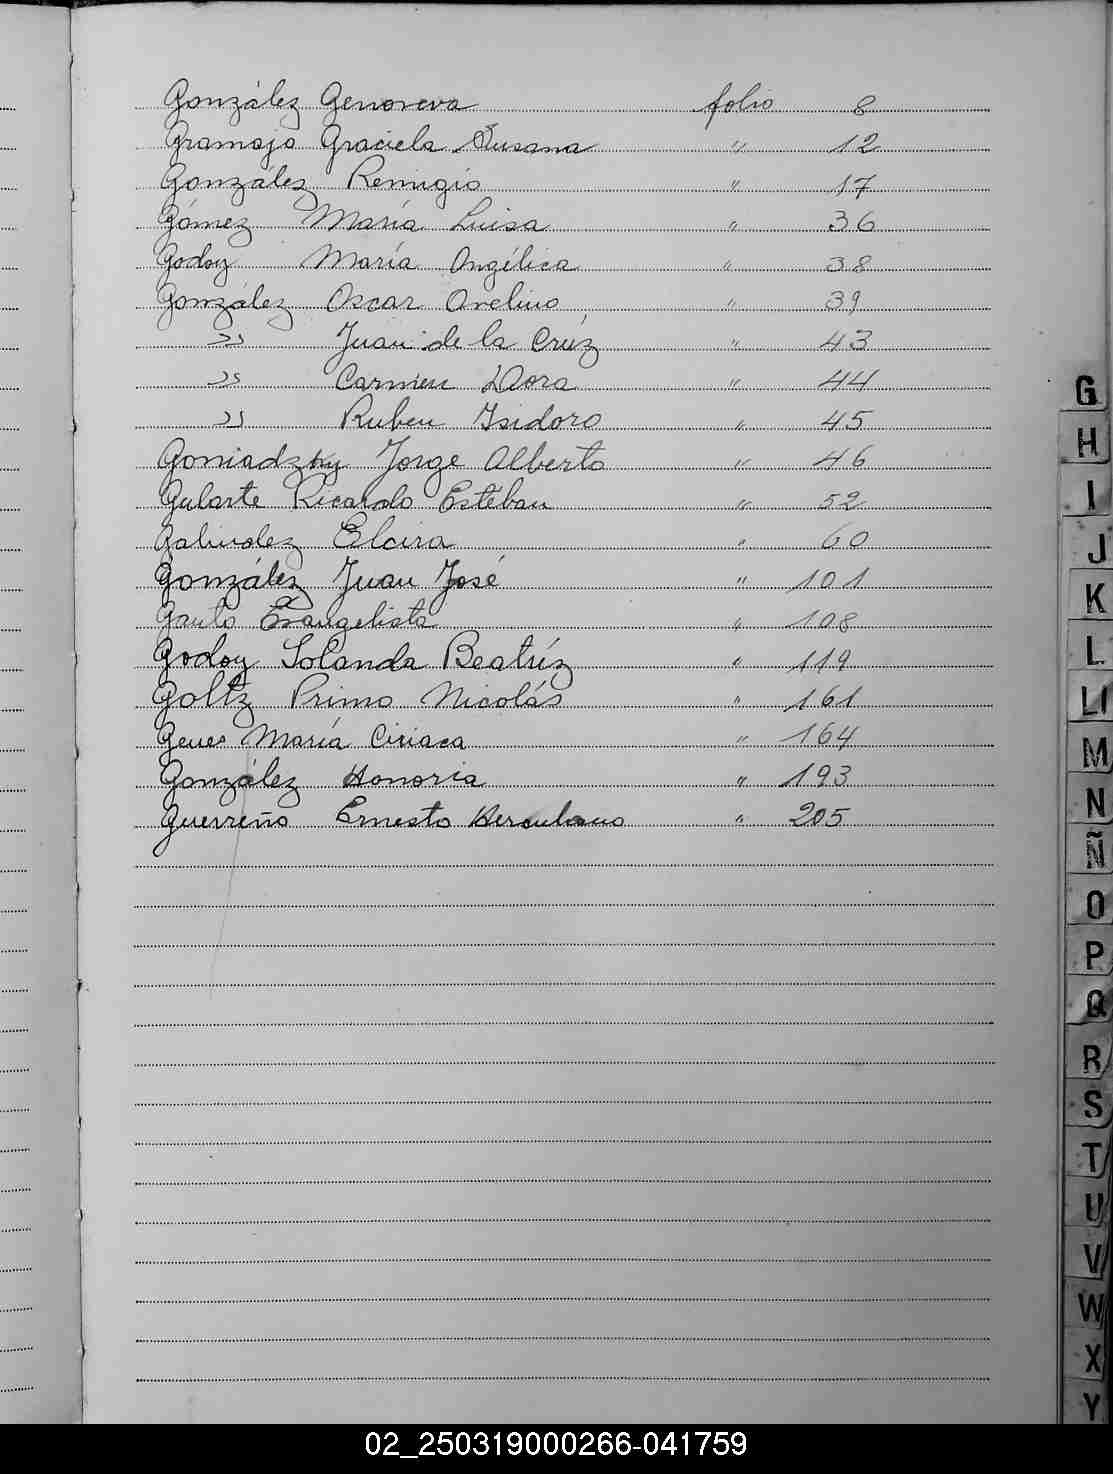 González Genoveva folio 8
Gramajo Graciela Susana " 12
González Remigio " 17
Gómez María Luisa " 36
Godoy María Angélica " 38
González Oscar Avelino " 39
" Juan de la Crúz " 43
" Carmen Dora " 44
" Ruben Isidoro " 45
Goniadzky Jorge Alberto " 46
Gularte Ricardo Estéban " 52
Galindez Elcira " 60
González Juan José " 101
Evangelista " 108
Godoy Iolanda Beatríz " 119
Goltz Primo Nicolás " 161
Genes María Ciriaca " 164
González Honoria " 193
Guerreño Ernesto Herculano " 205
G
H
I
J
K
L
Ll
M
N
Ñ
O
P
Q
R
S
T
U
V
W
X
Y
02_250319000266-041759